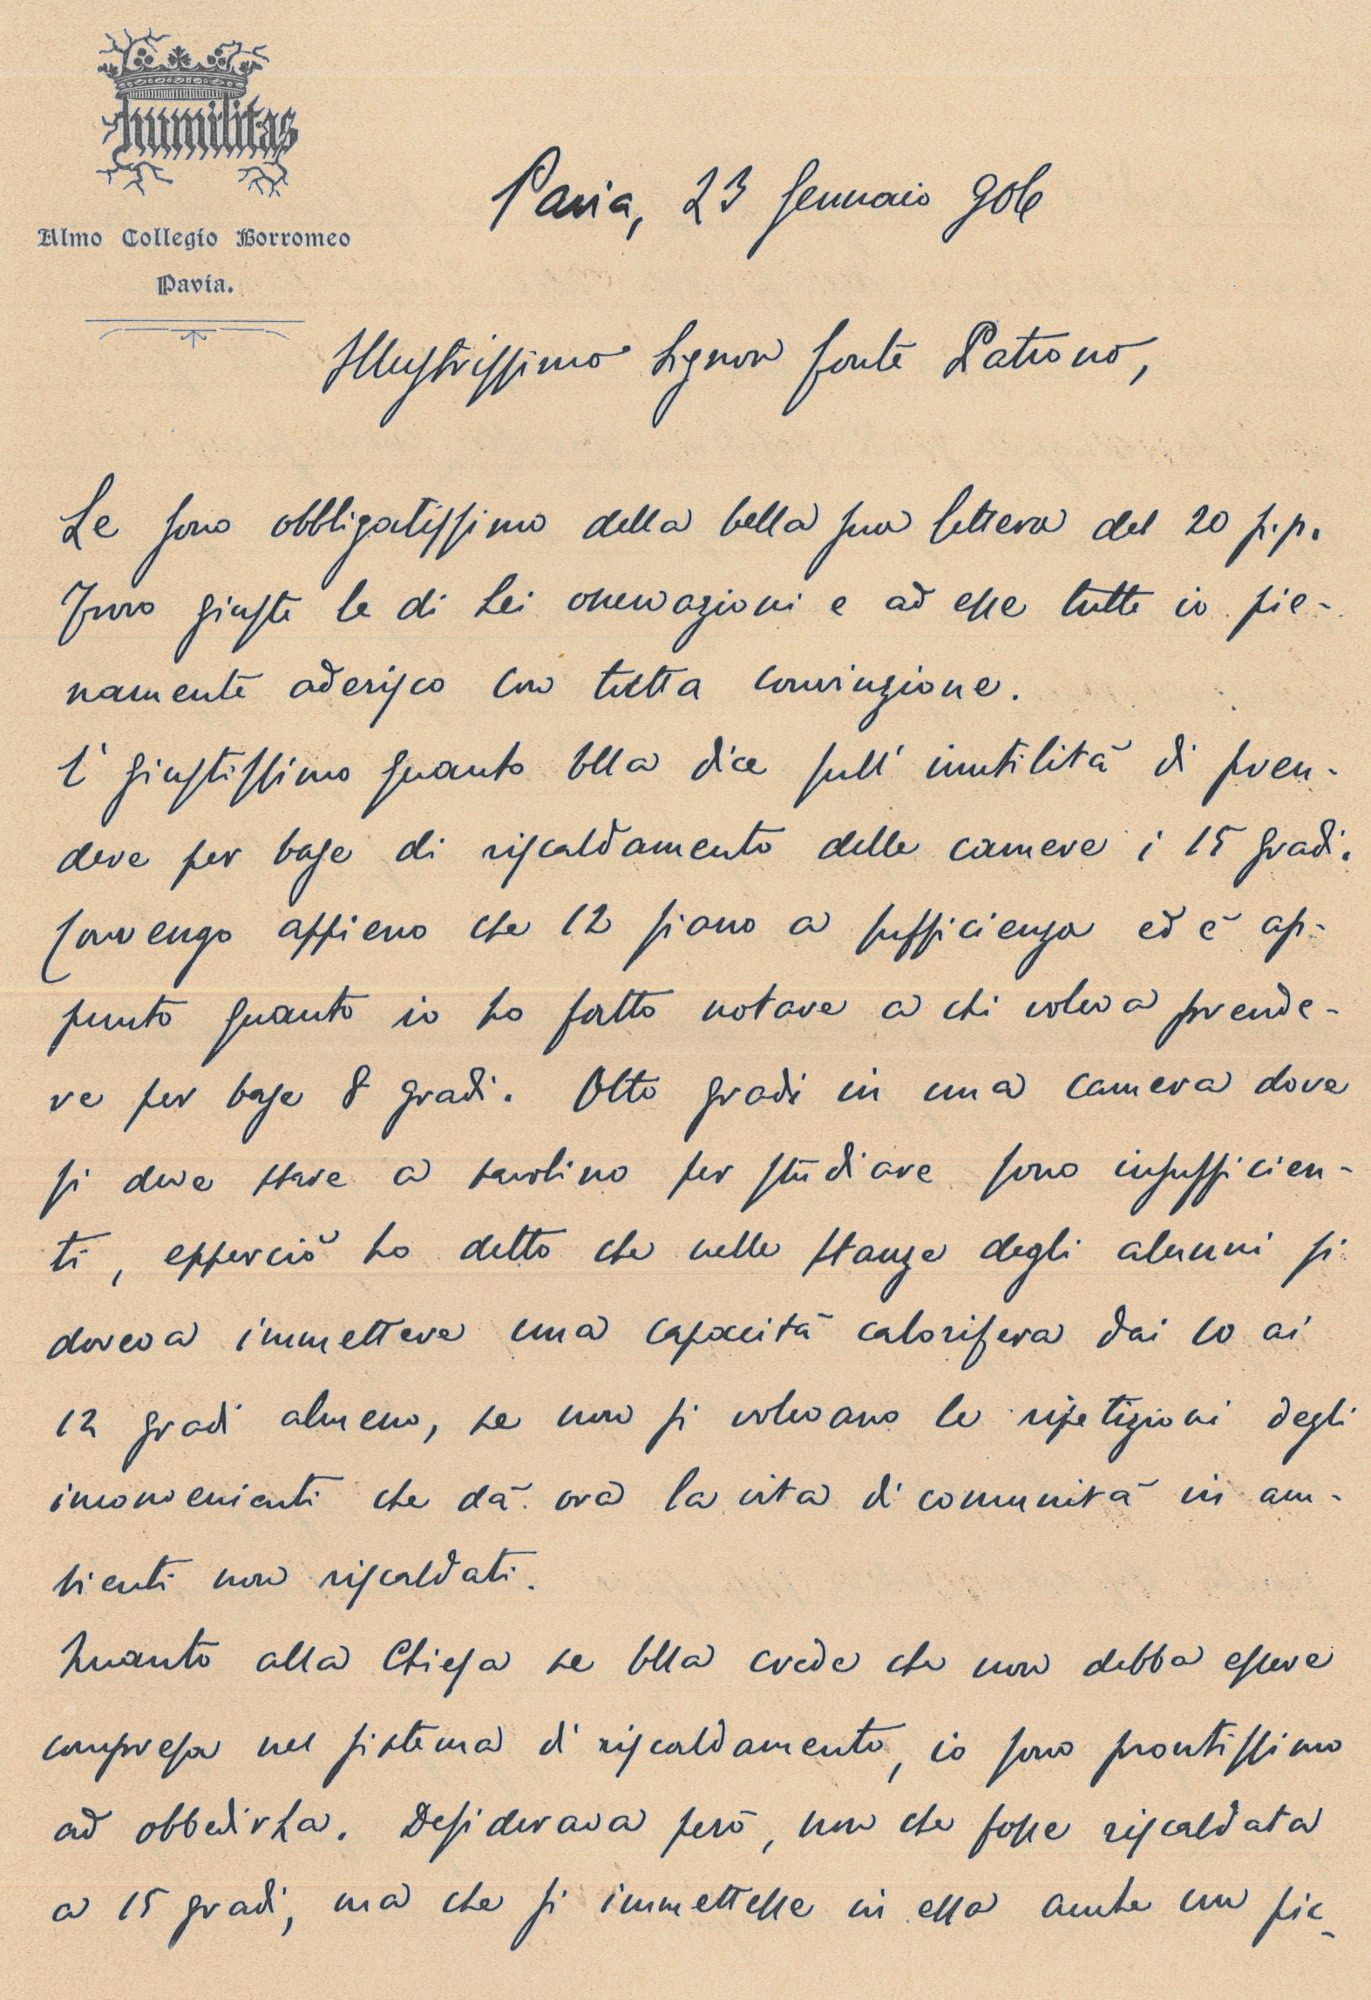 humilitas
Almo Collegio Borromeo
Pavia.
Pavia, 23 Gennaio 906
Illustrissimo Signor Conte Patrono,
Le sono obbligatissimo della bella sua lettera del 20 p.p.
Trovo giuste le di Lei osservazioni e ad esse tutte io pie-
namente aderisco con tutta convinzione.
È giustissimo quanto Ella dice sull' inutilità di pren-
dere per base di riscaldamento delle camere i 15 gradi.
Convengo appieno che 12 siano a sufficienza ed è ap-
punto quanto io ho fatto notare a chi voleva prende-
re per base 8 gradi. Otto gradi in una camera dove
si deve stare a tavolino per studiare sono insufficien-
ti, epperciò ho detto che nelle stanze degli alunni si
doveva immettere una capacità calorifera dai 10 ai
12 gradi almeno, se non si volevano le ripetizioni degli
inconvenienti che dà ora la vita di comunità in am-
bienti non riscaldati.
Quanto alla Chiesa se Ella crede che non debba essere
compresa nel sistema di riscaldamento, io sono prontissimo
ad obbedirLa. Desiderava però, non che fosse riscaldata
a 15 gradi, ma che si immettesse in essa anche un pic-